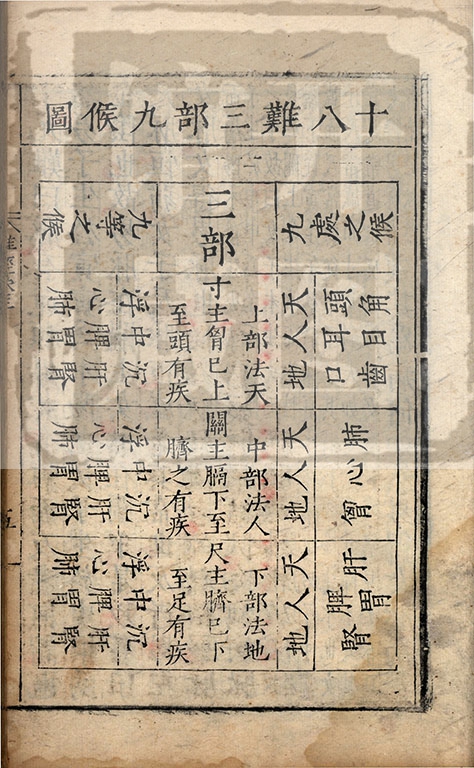 十八難三部九候圖
九處之候
三部
九等之候
頭角
耳目
口齒
天人地
上部法天
寸主胷已上
至頭有疾
浮中沉
心脾肝
肺胃腎
肺
心
胷
天人地
中部法人
關主膈下至
臍之有疾
浮中沉
心脾肝
肺胃腎
肝
脾胃
腎
天人地
下部法地
尺主臍已下
至足有疾
浮中沉
心脾肝
肺胃腎